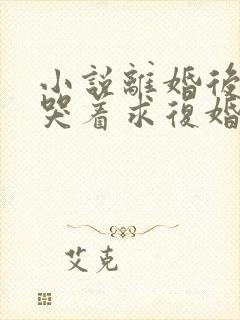 小說離婚後
哭着求復婚
艾克